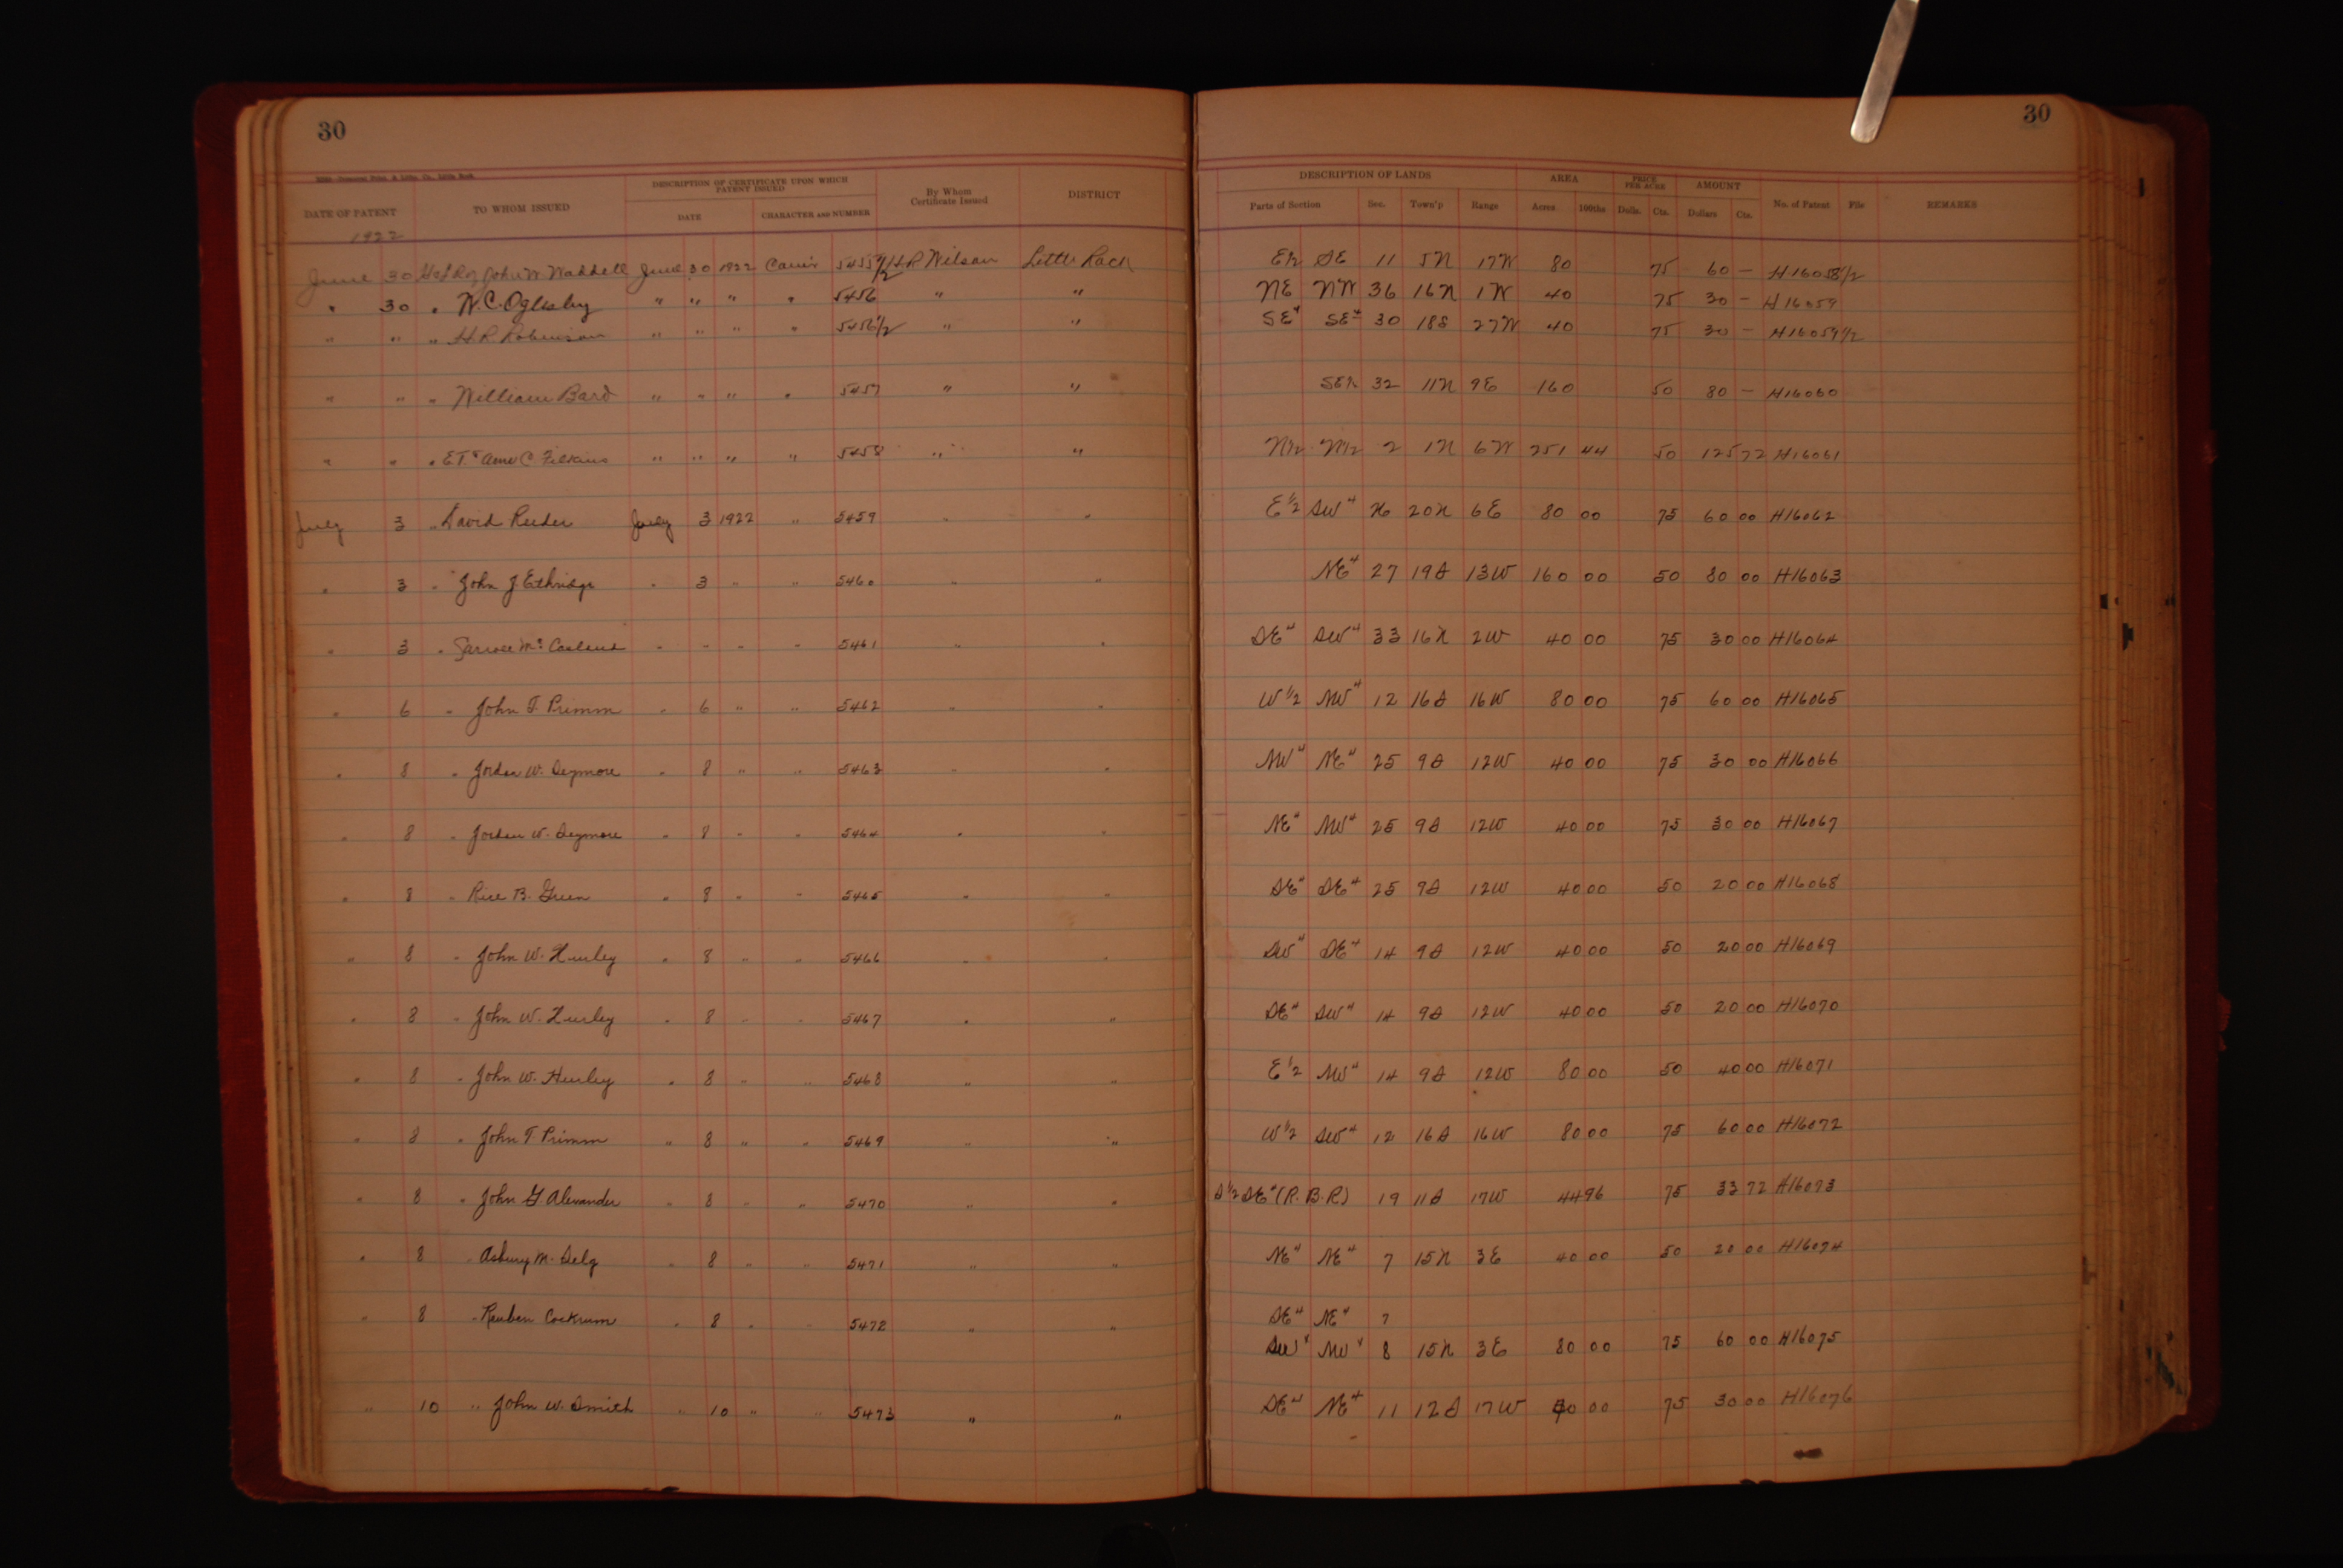 30
30
DESCRIPTION OF CERTIFICATE UPON WHICH PATENT ISSUED
DATE OF PATENT TO WHOM ISSUED DATE CHARACTER AND NUMBER By Whom Certificate Issued DISTRICT
DESCRIPTION OF LANDS AREA PRICE PER ACRE AMOUNT
Parts of Section Sec. Town'p Range Acres 100ths Dolls. Cts. Dollars Cts. No. of Patent File REMARKS
1922
June 30 John W. Waddell June 30 1922 5455 1/2 H R Wilson Little Rock E½ SE 11 5N 17W 80 75 60 — H16058½
" 30 " W. C. Oglesby " " " " 5456 " " NE NW 36 16N 1W 40 75 30 — H16059
" " " H R Robinson " " " " 5456½ " " SE4 SE4 30 18S 27W 40 75 30 — H16059½
" " " William Bard " " " " 5457 " " SE¼ 32 11N 9E 160 50 80 — H16060
" " " E.T. & C. Filkins " " " " 5458 " " N½ N½ 2 1N 6W 251 44 50 125 72 H16061
July 3 " David Reeder July 3 1922 " 5459 " " E½ SW4 26 20N 6E 80 00 75 60 00 H16062
" 3 " John J Ethridge " 3 " " 5460 " " NE4 27 19S 13W 160 00 50 80 00 H16063
" 3 " " " " " 5461 " " SE4 SW4 33 16N 2W 40 00 75 30 00 H16064
" 6 " John T. Primm " 6 " " 5462 " " W½ NW4 12 16S 16W 80 00 75 60 00 H16065
" 8 " Jordan W. Seymore " 8 " " 5463 " " NW4 NE4 25 9S 12W 40 00 75 30 00 H16066
" 8 " Jordan W. Seymore " 8 " " 5464 " " NE4 NW4 25 9S 12W 40 00 75 30 00 H16067
" 8 " Rice B. Green " 8 " " 5465 " " SE4 SE4 25 9S 12W 40 00 50 20 00 H16068
" 8 " John W. Hurley " 8 " " 5466 " " SW4 SE4 14 9S 12W 40 00 50 20 00 H16069
" 8 " John W. Hurley " 8 " " 5467 " " SE4 SW4 14 9S 12W 40 00 50 20 00 H16070
" 8 " John W. Hurley " 8 " " 5468 " " E½ NW4 14 9S 12W 80 00 50 40 00 H16071
" 8 " John T Primm " 8 " " 5469 " " W½ SW4 12 16S 16W 80 00 75 60 00 H16072
" 8 " John G Alexander " 8 " " 5470 " " S½ SE4 (R. B. R) 19 11S 17W 44 96 75 33 72 H16073
" 8 " Asbury M. Selg " 8 " " 5471 " " NE4 NE4 7 15N 3E 40 00 50 20 00 H16074
" 8 " Reuben Cockrum " 8 " " 5472 " " SE4 NE4 7
SW4 NW4 8 15N 3E 80 00 75 60 00 H16075
" 10 " John W. Smith " 10 " " 5473 " " SE4 NE4 11 12S 17W 40 00 75 30 00 H16076